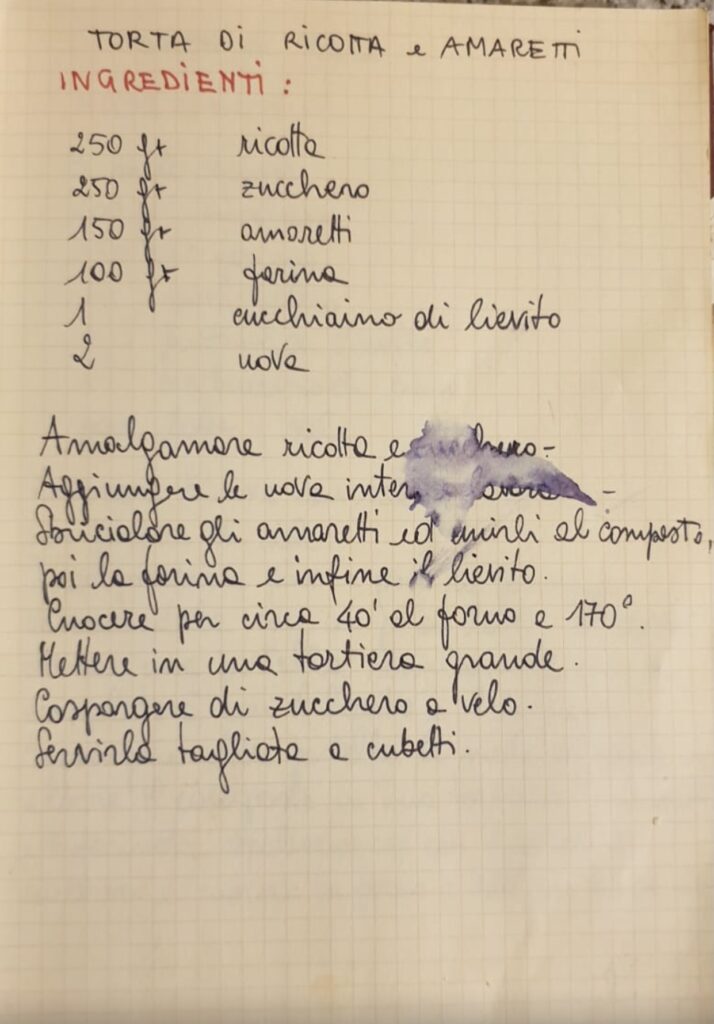 TORTA DI RICOTTA e AMARETTI
INGREDIENTI :
250 gr ricotta
250 gr zucchero
150 gr amaretti
100 gr farina
1 cucchiaino di lievito
2 uova
Amalgamare ricotta e zucchero-
Aggiungere le uova -
Sbriciolare gli amaretti ed unirli al composto,
poi la farina e infine il lievito.
Cuocere per circa 40' al forno a 170°.
Mettere in una tortiera grande.
Cospargere di zucchero a velo.
Servirla tagliata a cubetti.